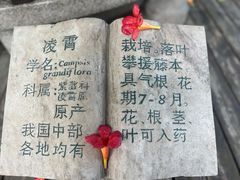 凌霄
学名:Campsis
grandiflora
科属:紫葳科
凌霄属
原产
我国中部
各地均有
栽培。落叶
攀援藤本
具气根、花
期7-8月。
花、根、茎、
叶可入药